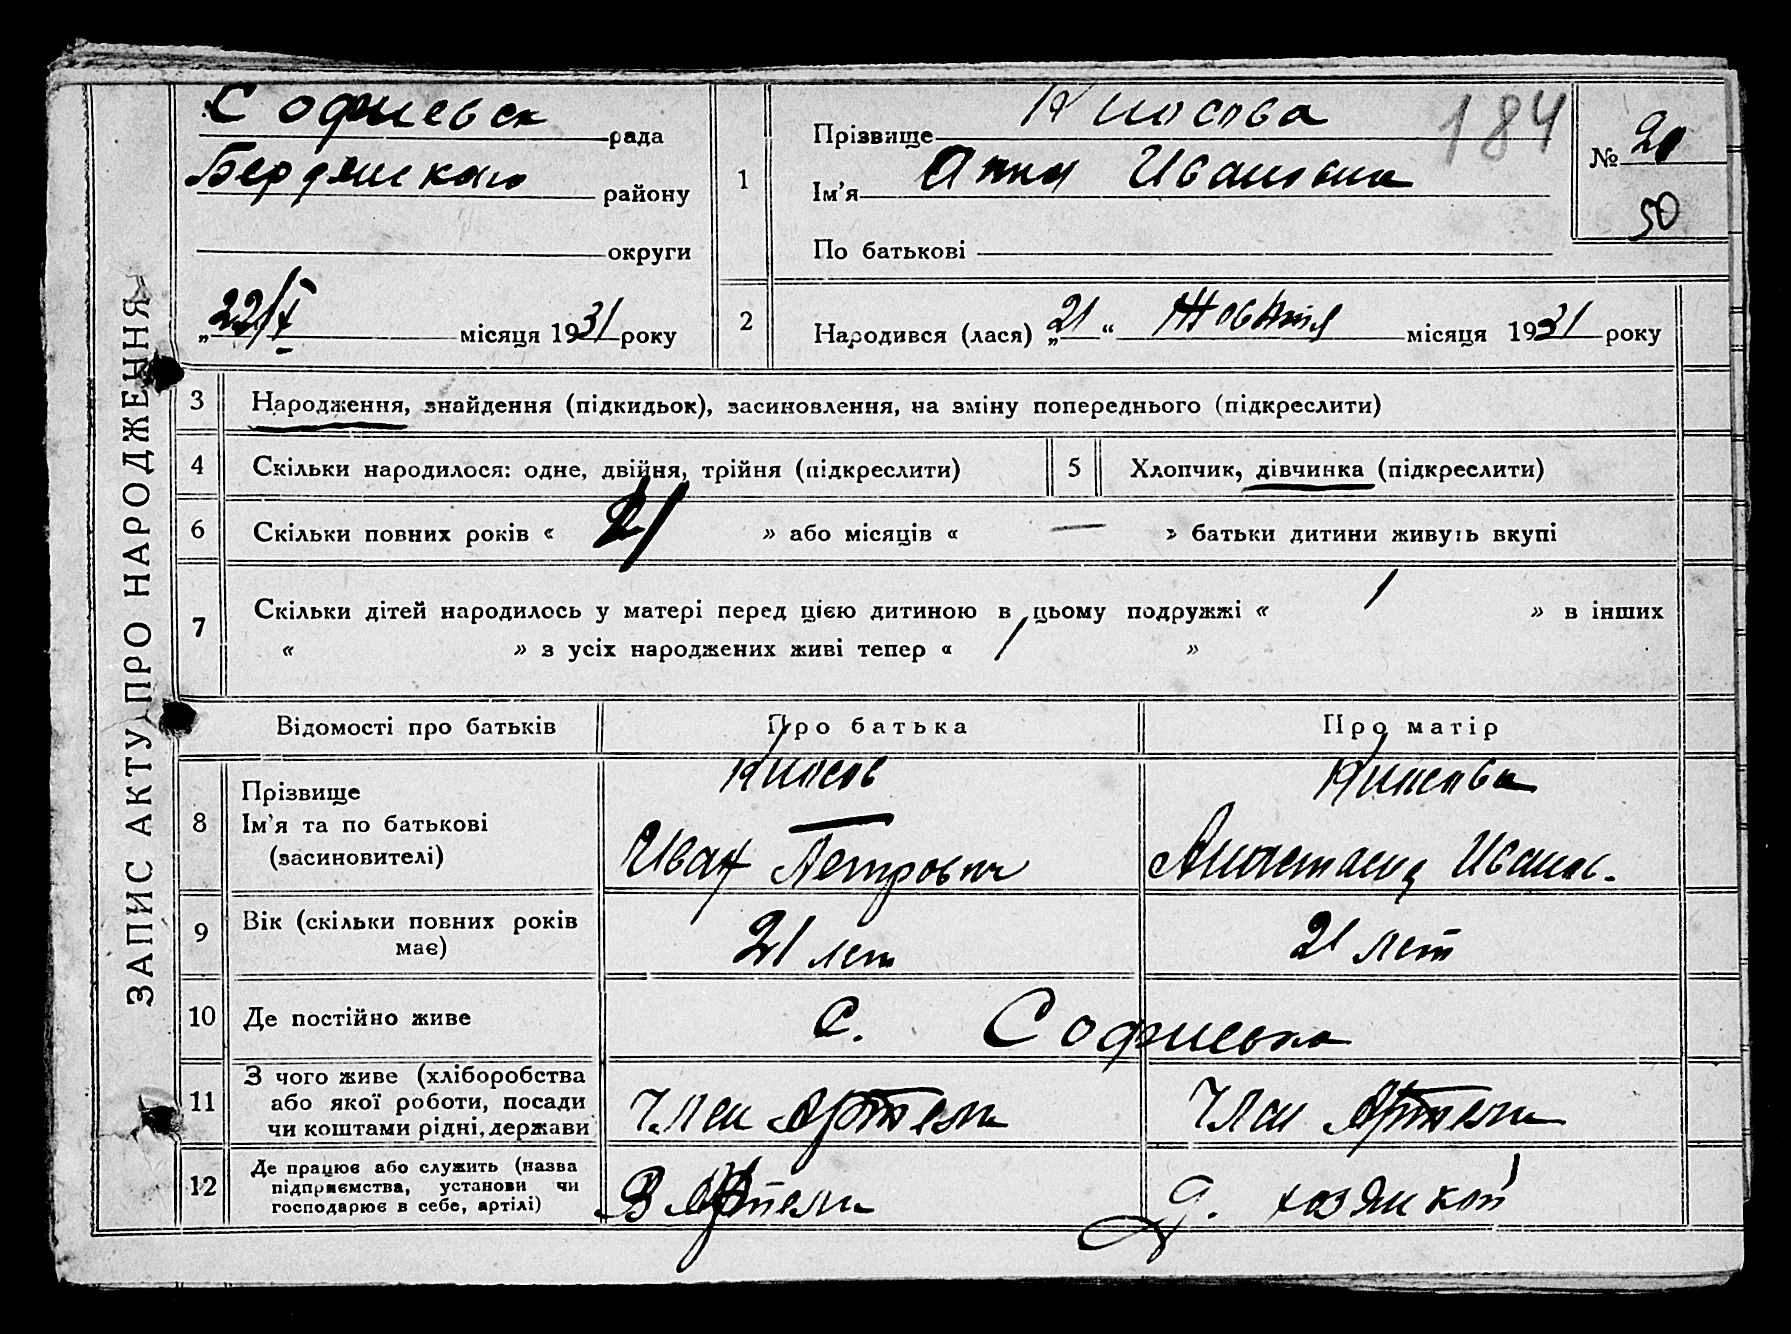 ЗАПИС АКТУ ПРО НАРОДЖЕННЯ
Софиевск рада
Бердянского району
округи
„22/X місяця 1931 року
1
Прізвище
184
Ім'я Анна Ивановна
По батькові
№ 20
50
2
Народився (лася) „21“ Жовтня місяця 1931 року
3 Народження, знайдення (підкидьок), засиновлення, на зміну попереднього (підкреслити)
4 Скільки народилося: одне, двійня, трійня (підкреслити) 5 Хлопчик, дівчинка (підкреслити)
6 Скільки повних років « » або місяців « — » батьки дитини живуть вкупі
7 Скільки дітей народилось у матері перед цією дитиною в цьому подружжі « 1 » в інших
« » з усіх народжених живі тепер « 1 »
Відомості про батьків Про батька Про матір
8 Прізвище
Ім'я та по батькові
(засиновителі)
Иван Петрович Анастасия Иванов.
9 Вік (скільки повних років
має)
21 лет 21 лет
10 Де постійно живе с. Софиевка
11 З чого живе (хліборобства
або якої роботи, посади
чи коштами рідні, держави
Член Артели Член Артели
12 Де працює або служить (назва
підприємства, установи чи
господарює в себе, артілі)
В Артели Д. хозяйкой